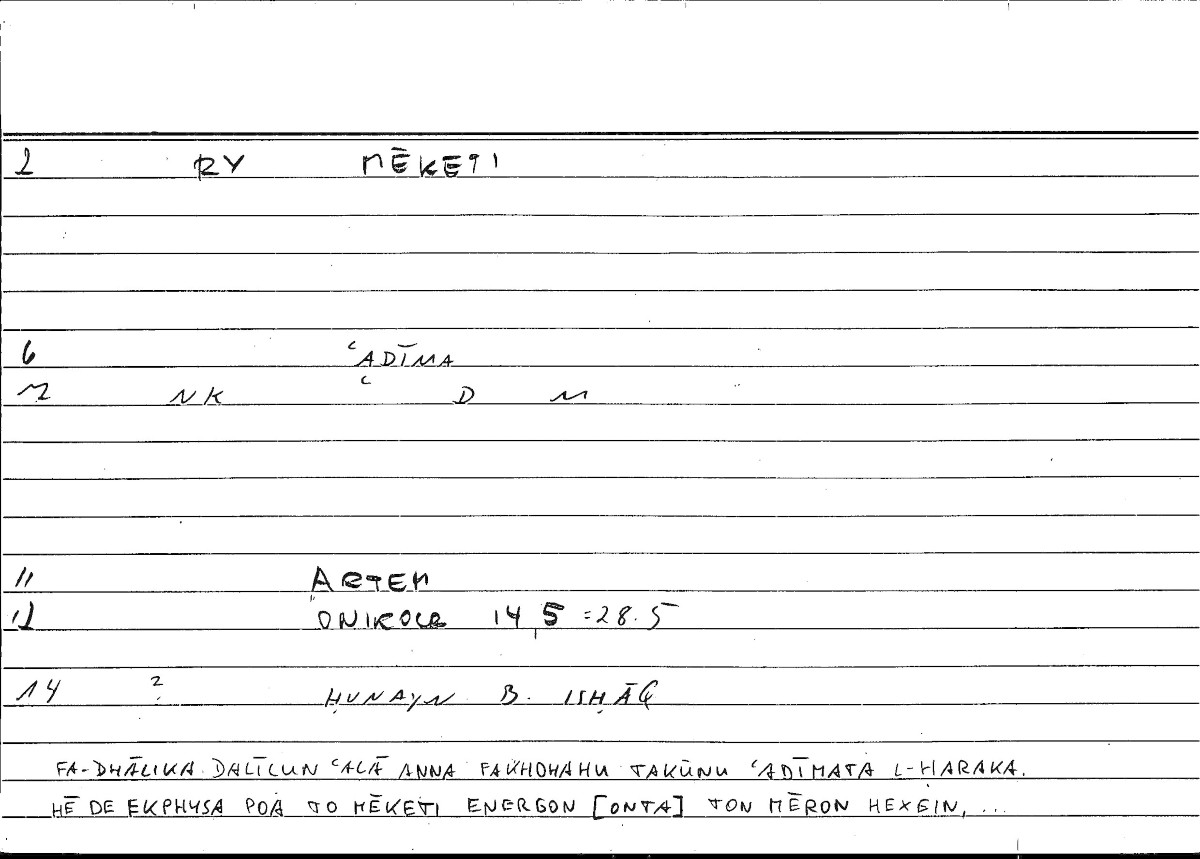 2 RY MĒKETI
6 ʿADĪMA
7 NK ʿ D M
11 ARTEM
12 ONIROCR 14,5 =28.5
14 2 ḤUNAYN B. ISḤĀQ
FA-DHĀLIKA DALĪLUN ʿALĀ ANNA FAKHDHAHU TAKŪNU ʿADĪMATA L-ḤARAKA.
HĒ DE EKPHYSA POA TO MĒKETI ENERGON [ONTA] TON MĒRON HEXEIN, ...